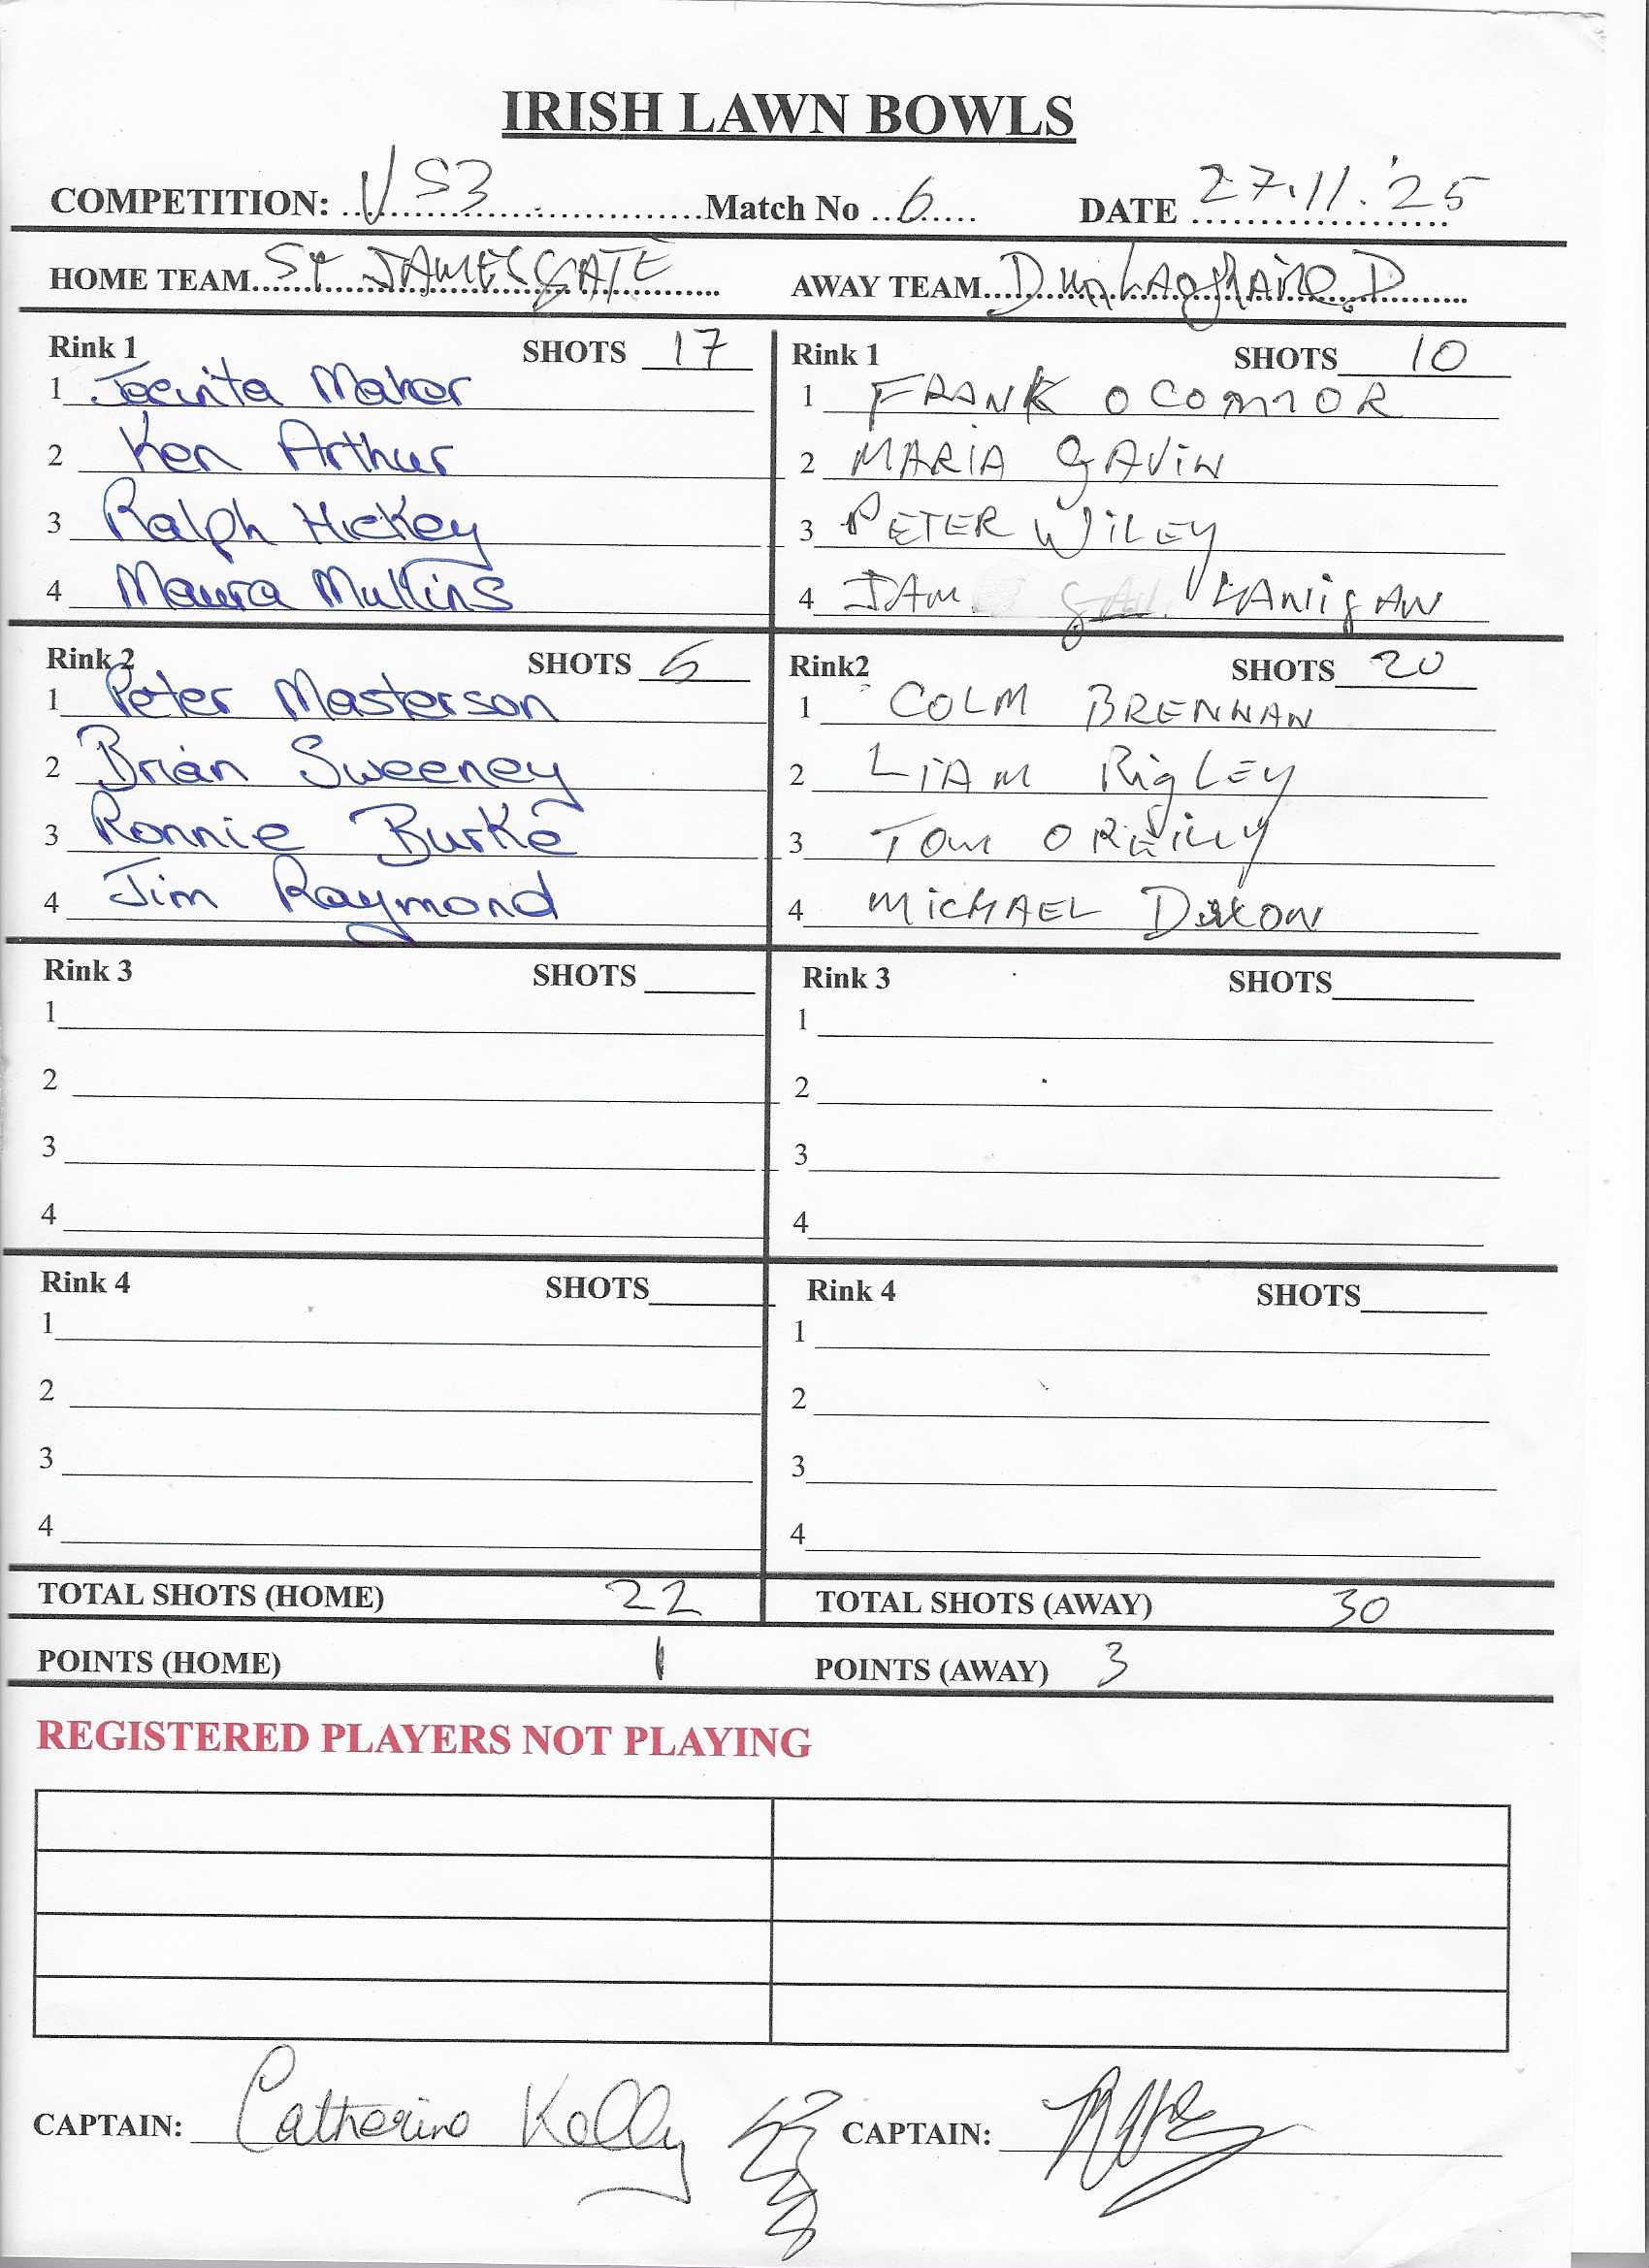 IRISH LAWN BOWLS
COMPETITION: VS3 Match No 6 DATE 27.11.'25
HOME TEAM St JAMES GATE AWAY TEAM Dun LAOghAiRe.D
Rink 1 SHOTS 17 Rink 1 SHOTS 10
1 Jacinta Maher 1 FRANK O CONNOR
2 Ken Arthur 2 MARIA GAVIN
3 Ralph Hickey 3 PETER WILEY
4 Maura Mullins 4 JAM LANIGAN
Rink 2 SHOTS 5 Rink2 SHOTS 20
1 Peter Masterson 1 COLM BRENNAN
2 Brian Sweeney 2 LIAM RIGLEY
3 Ronnie Burke 3 TOM O REILLY
4 Jim Raymond 4 MICHAEL DIXON
Rink 3 SHOTS Rink 3 SHOTS
1 1
2 2
3 3
4 4
Rink 4 SHOTS Rink 4 SHOTS
1 1
2 2
3 3
4 4
TOTAL SHOTS (HOME) 22 TOTAL SHOTS (AWAY) 30
POINTS (HOME) 1 POINTS (AWAY) 3
REGISTERED PLAYERS NOT PLAYING
CAPTAIN: Catherine Kelly CAPTAIN: